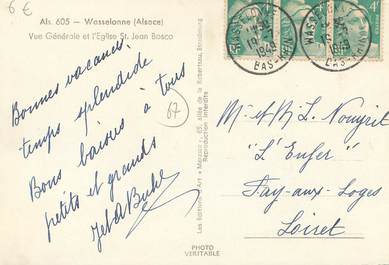 6 €
Als. 605 - Wasselonne (Alsace)
Vue Générale et l'Eglise St. Jean Bosco
Bonnes vacances.
temps splendide
Bons baisers à tous
petits et grands
67
Les Editions d'Art
65, allée de la Robertsau, Strasbourg
Reproduction interdite
PHOTO
VERITABLE
BAS-RHIN
1949
4F
M. et M. L. Nouyrit
"L'Enfer"
Fay-aux-Loges
Loiret